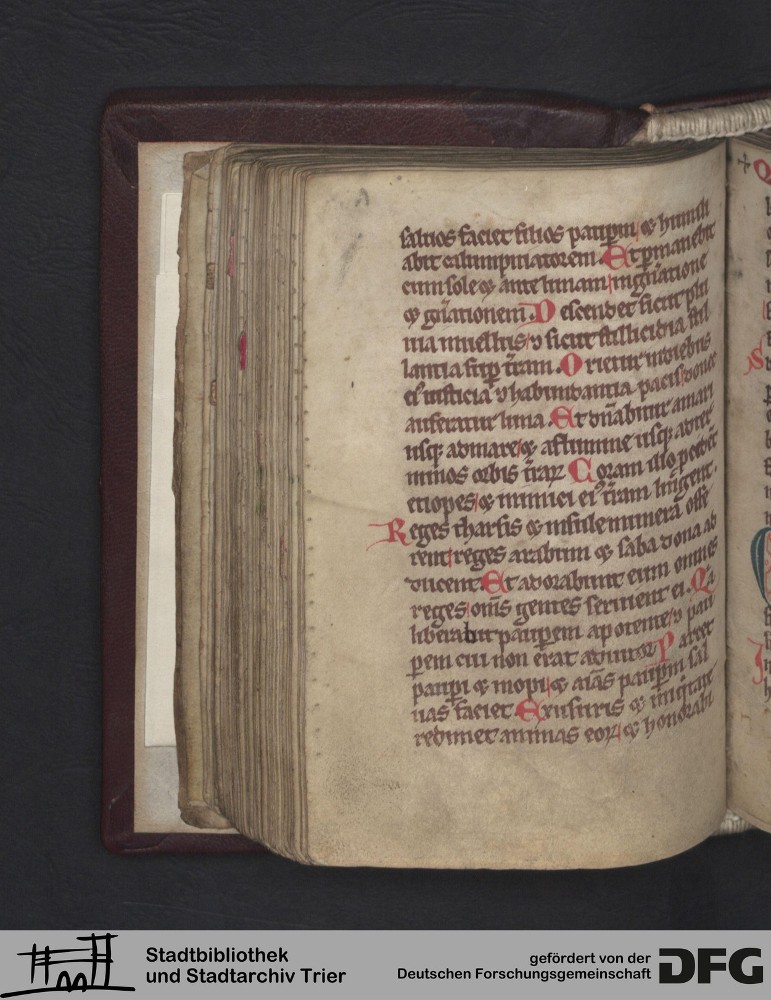 saluos faciet filios pauperum & humili
abit calumpniatorem. Et permanebit
cum sole & ante lunam in generatione
& generationem. Descendet sicut plu
uia in uellus & sicut stillicidia stil
lantia super terram. Orietur in diebus
eius iusticia & habundantia pacis donec
auferatur luna. Et dominabitur a mari
usque ad mare & a flumine usque ad ter
minos orbis terrarum. Coram illo procident
etiopes & inimici eius terram lingent.
Reges tharsis & insule munera offe
rent reges arabum & saba dona ad
ducent. Et adorabunt eum omnes
reges omnes gentes seruient ei. Quia
liberabit pauperem a potente & pau
perem cui non erat adiutor. Parcet
pauperi & inopi & animas pauperum sal
uas faciet. Ex usuris & iniquitate
redimet animas eorum & honorabi
Stadtbibliothek
und Stadtarchiv Trier
gefördert von der
Deutschen Forschungsgemeinschaft
DFG